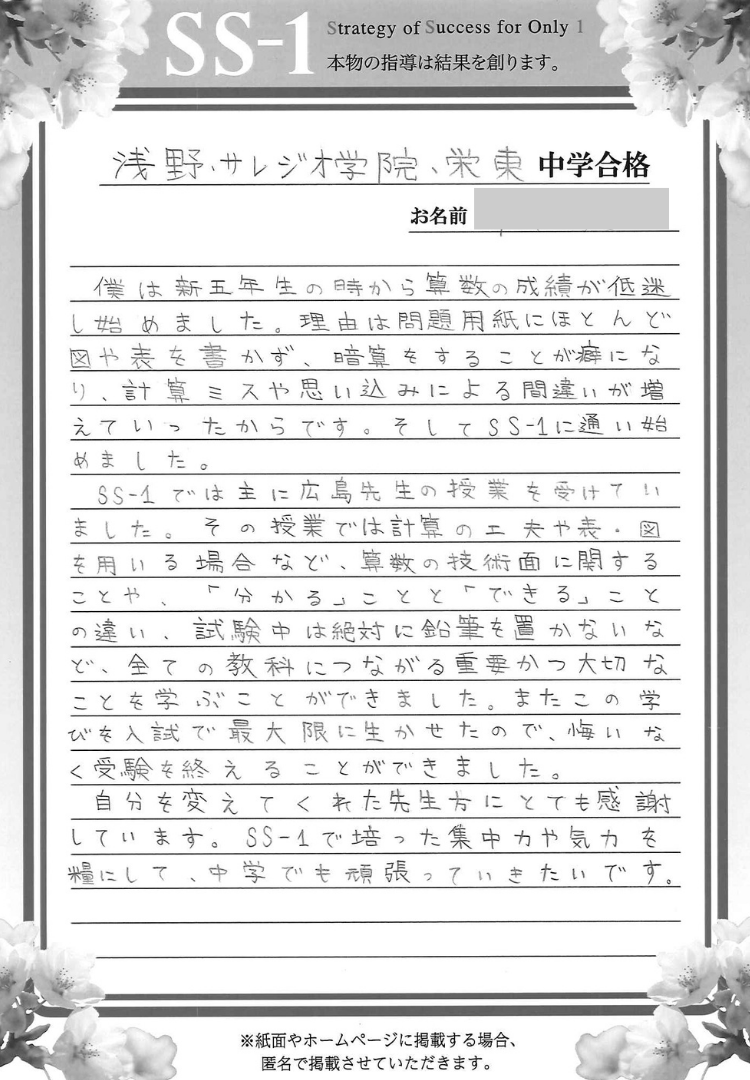 SS-1
Strategy of Success for Only 1
本物の指導は結果を創ります。
浅野、サレジオ学院、栄東 中学合格
お名前
僕は新五年生の時から算数の成績が低迷
し始めました。理由は問題用紙にほとんど
図や表を書かず、暗算をすることが癖にな
り、計算ミスや思い込みによる間違いが増
えていったからです。そしてSS-1に通い始
めました。
SS-1では主に広島先生の授業を受けてい
ました。その授業では計算の工夫や表・図
を用いる場合など、算数の技術面に関する
ことや、「分かる」ことと「できる」こと
の違い、試験中は絶対に鉛筆を置かないな
ど、全ての教科につながる重要かつ大切な
ことを学ぶことができました。またこの学
びを入試で最大限に生かせたので、悔いな
く受験を終えることができました。
自分を変えてくれた先生方にとても感謝
しています。SS-1で培った集中力や気力を
糧にして、中学でも頑張っていきたいです。
※紙面やホームページに掲載する場合、
匿名で掲載させていただきます。